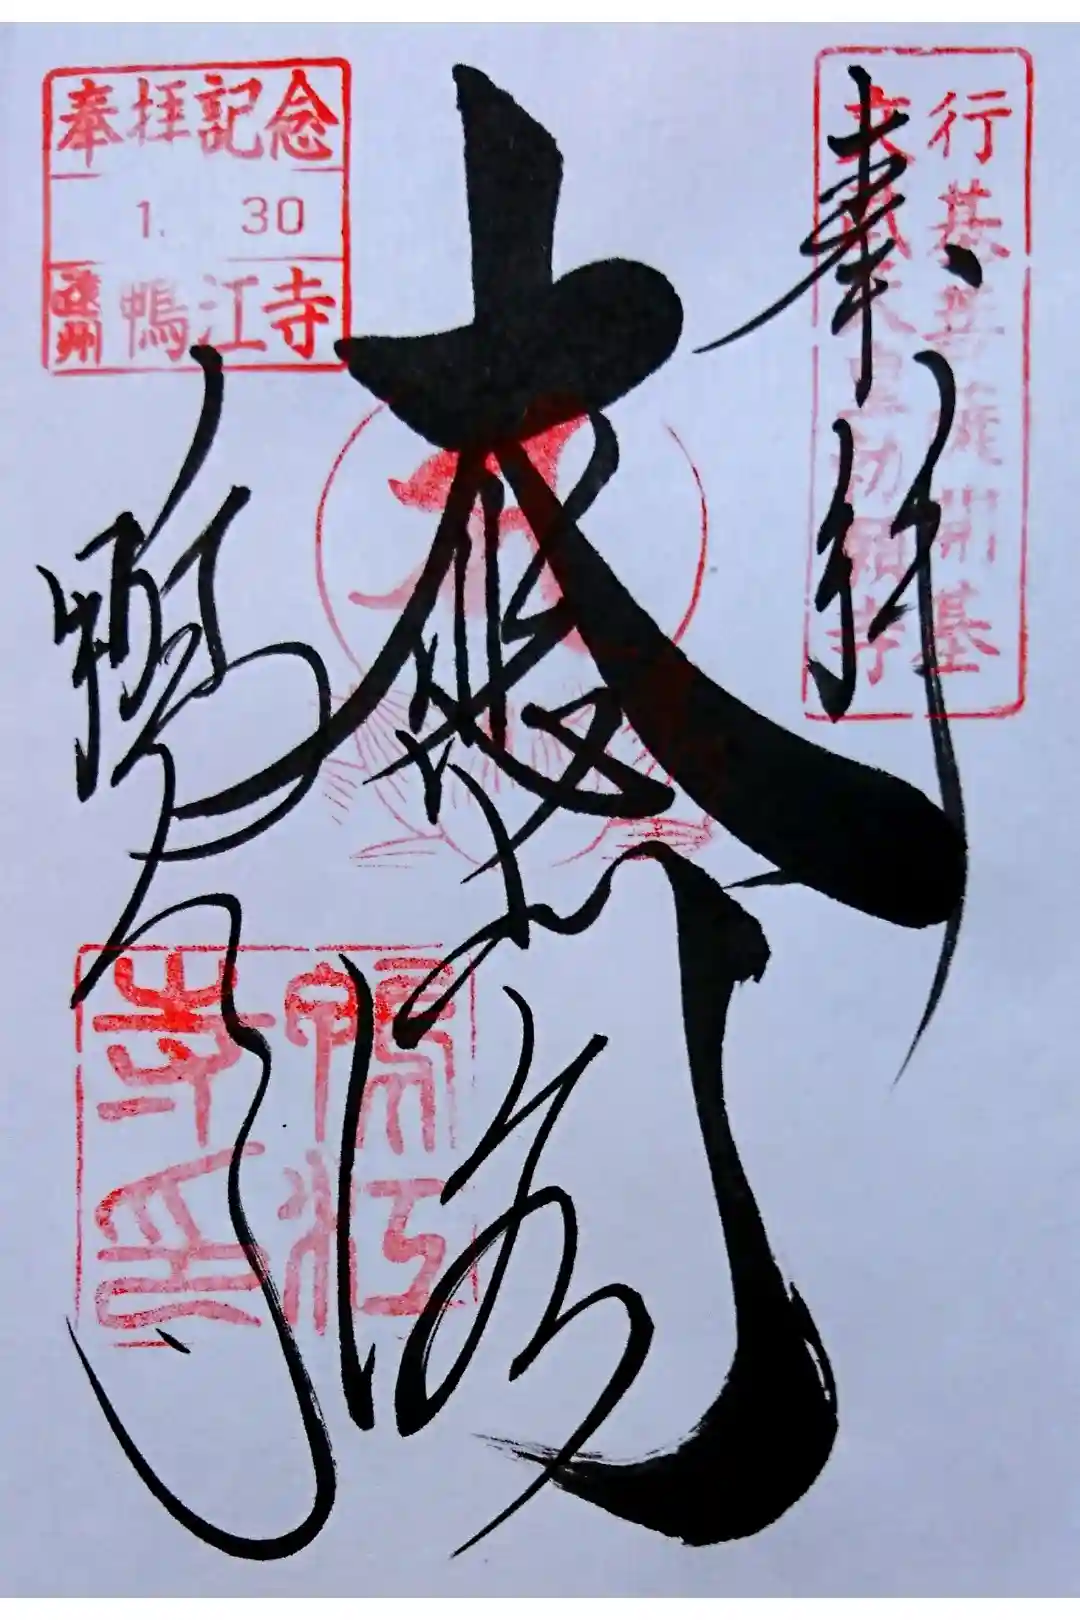 行基菩薩開基
文武天皇勅願寺
奉拝
大悲閣
奉拝記念
1. 30
遠州 鴨江寺
鴨江寺
鴨江
寺印